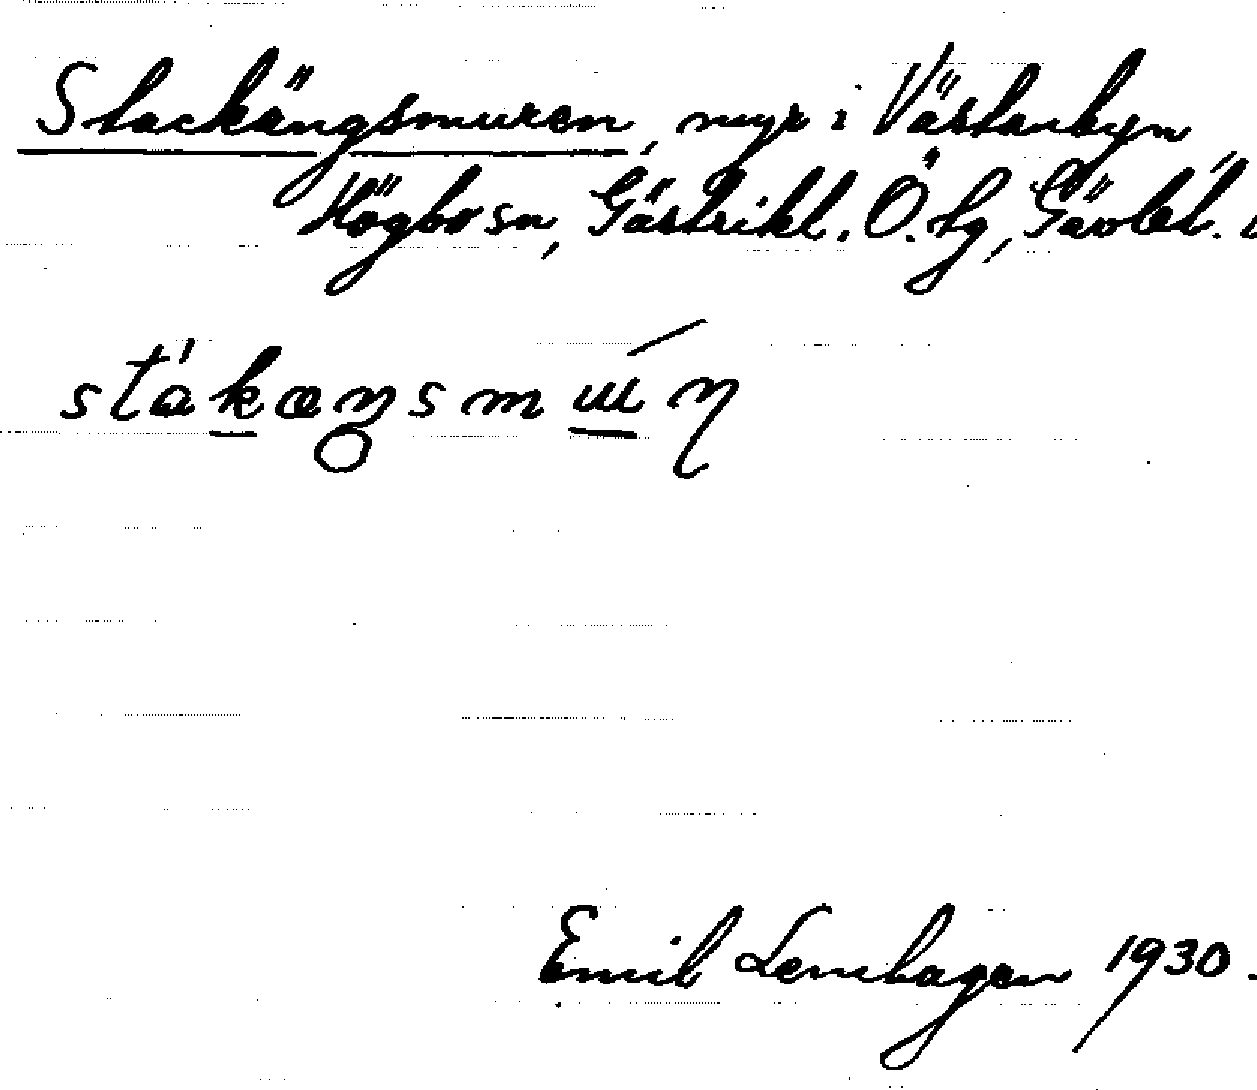 Stackängsmuren, myr i Västanbyn
Högbo sn, Gästrikl. Ö. tg, Gävleb. l
stákæŋsmɯ́n
Emil Lenhagen 1930.